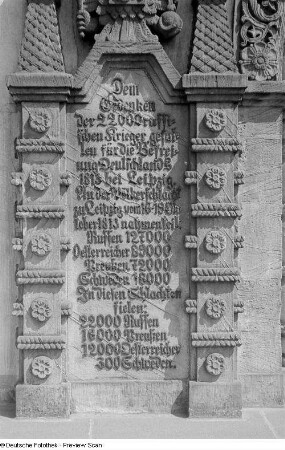 Dem
Gedenken
der 22000 russi-
schen Krieger gefal-
len für die Befrei-
ung Deutschlands
1813 bei Leipzig.
An der Völkerschlacht
zu Leipzig vom 16-19 Ok-
tober 1813 nahmen teil:
Russen 127000
Oesterreicher 89000
Preußen 72000
Schweden 18000
In diesen Schlachten
fielen:
22000 Russen
16000 Preußen
12000 Oesterreicher
300 Schweden.
© Deutsche Fotothek - Preview Scan